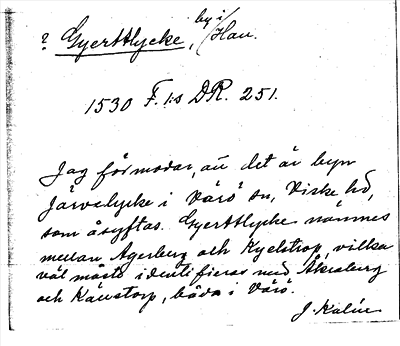 ? Gyerttlycke, by i Hall.
1530 F. I:s D.R. 251.
Jag förmodar, att det är byn
Järvelycke i Värö sn, Viske hd,
som åsyftas. Gyerttlycke nämnes
mellan Agerberg och Kyelstrop, vilka
väl måste identifieras med Åkraberg
och Källstorp, båda i Värö.
J. Kalén